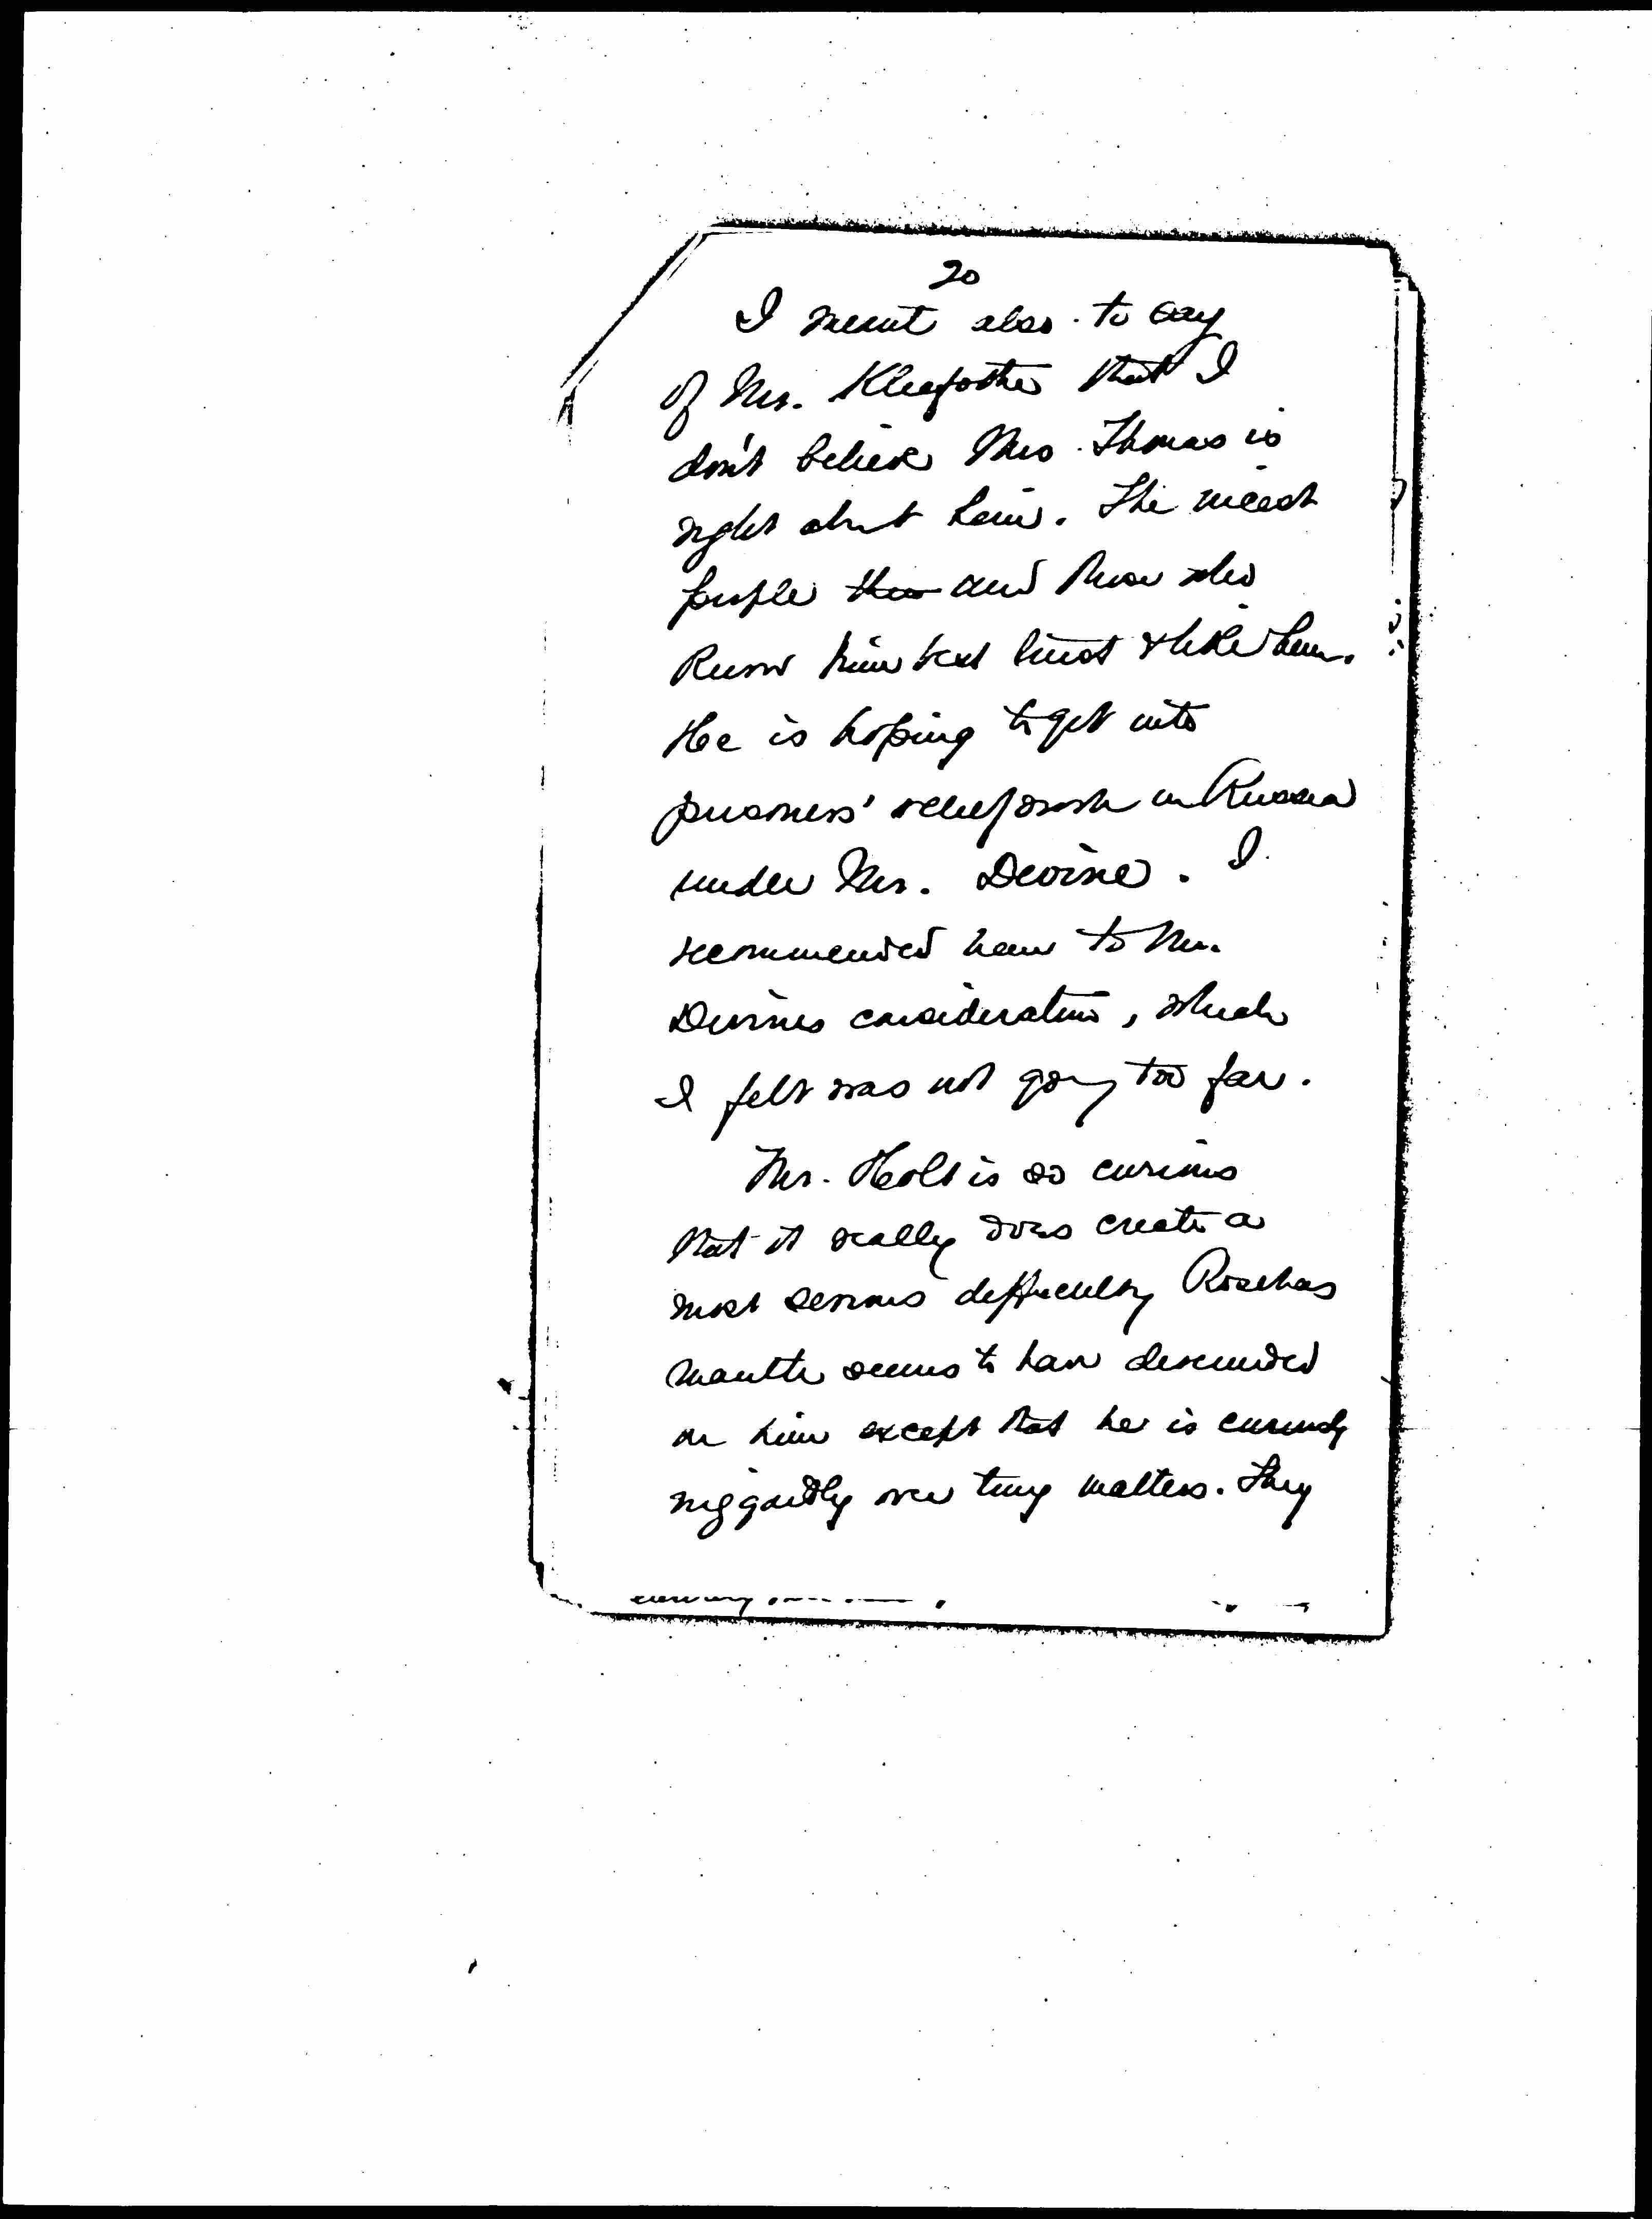 20
I meant also to say
of Mr. Kleefoth that I
don't believe Mrs. Thomas is
right about him. The nicest
people the and those who
know him best trust & like him.
He is hoping to get into
prisoners' relief work in Russia
under Mr. Devine. I
recommended him to Mr.
Devines consideration, which
I felt was not going too far.
Mr. Holt is so curious
that it really does create a
most serious difficulty
mantle seems to have descended
on him except that he is curiously
niggardly over tiny matters. They